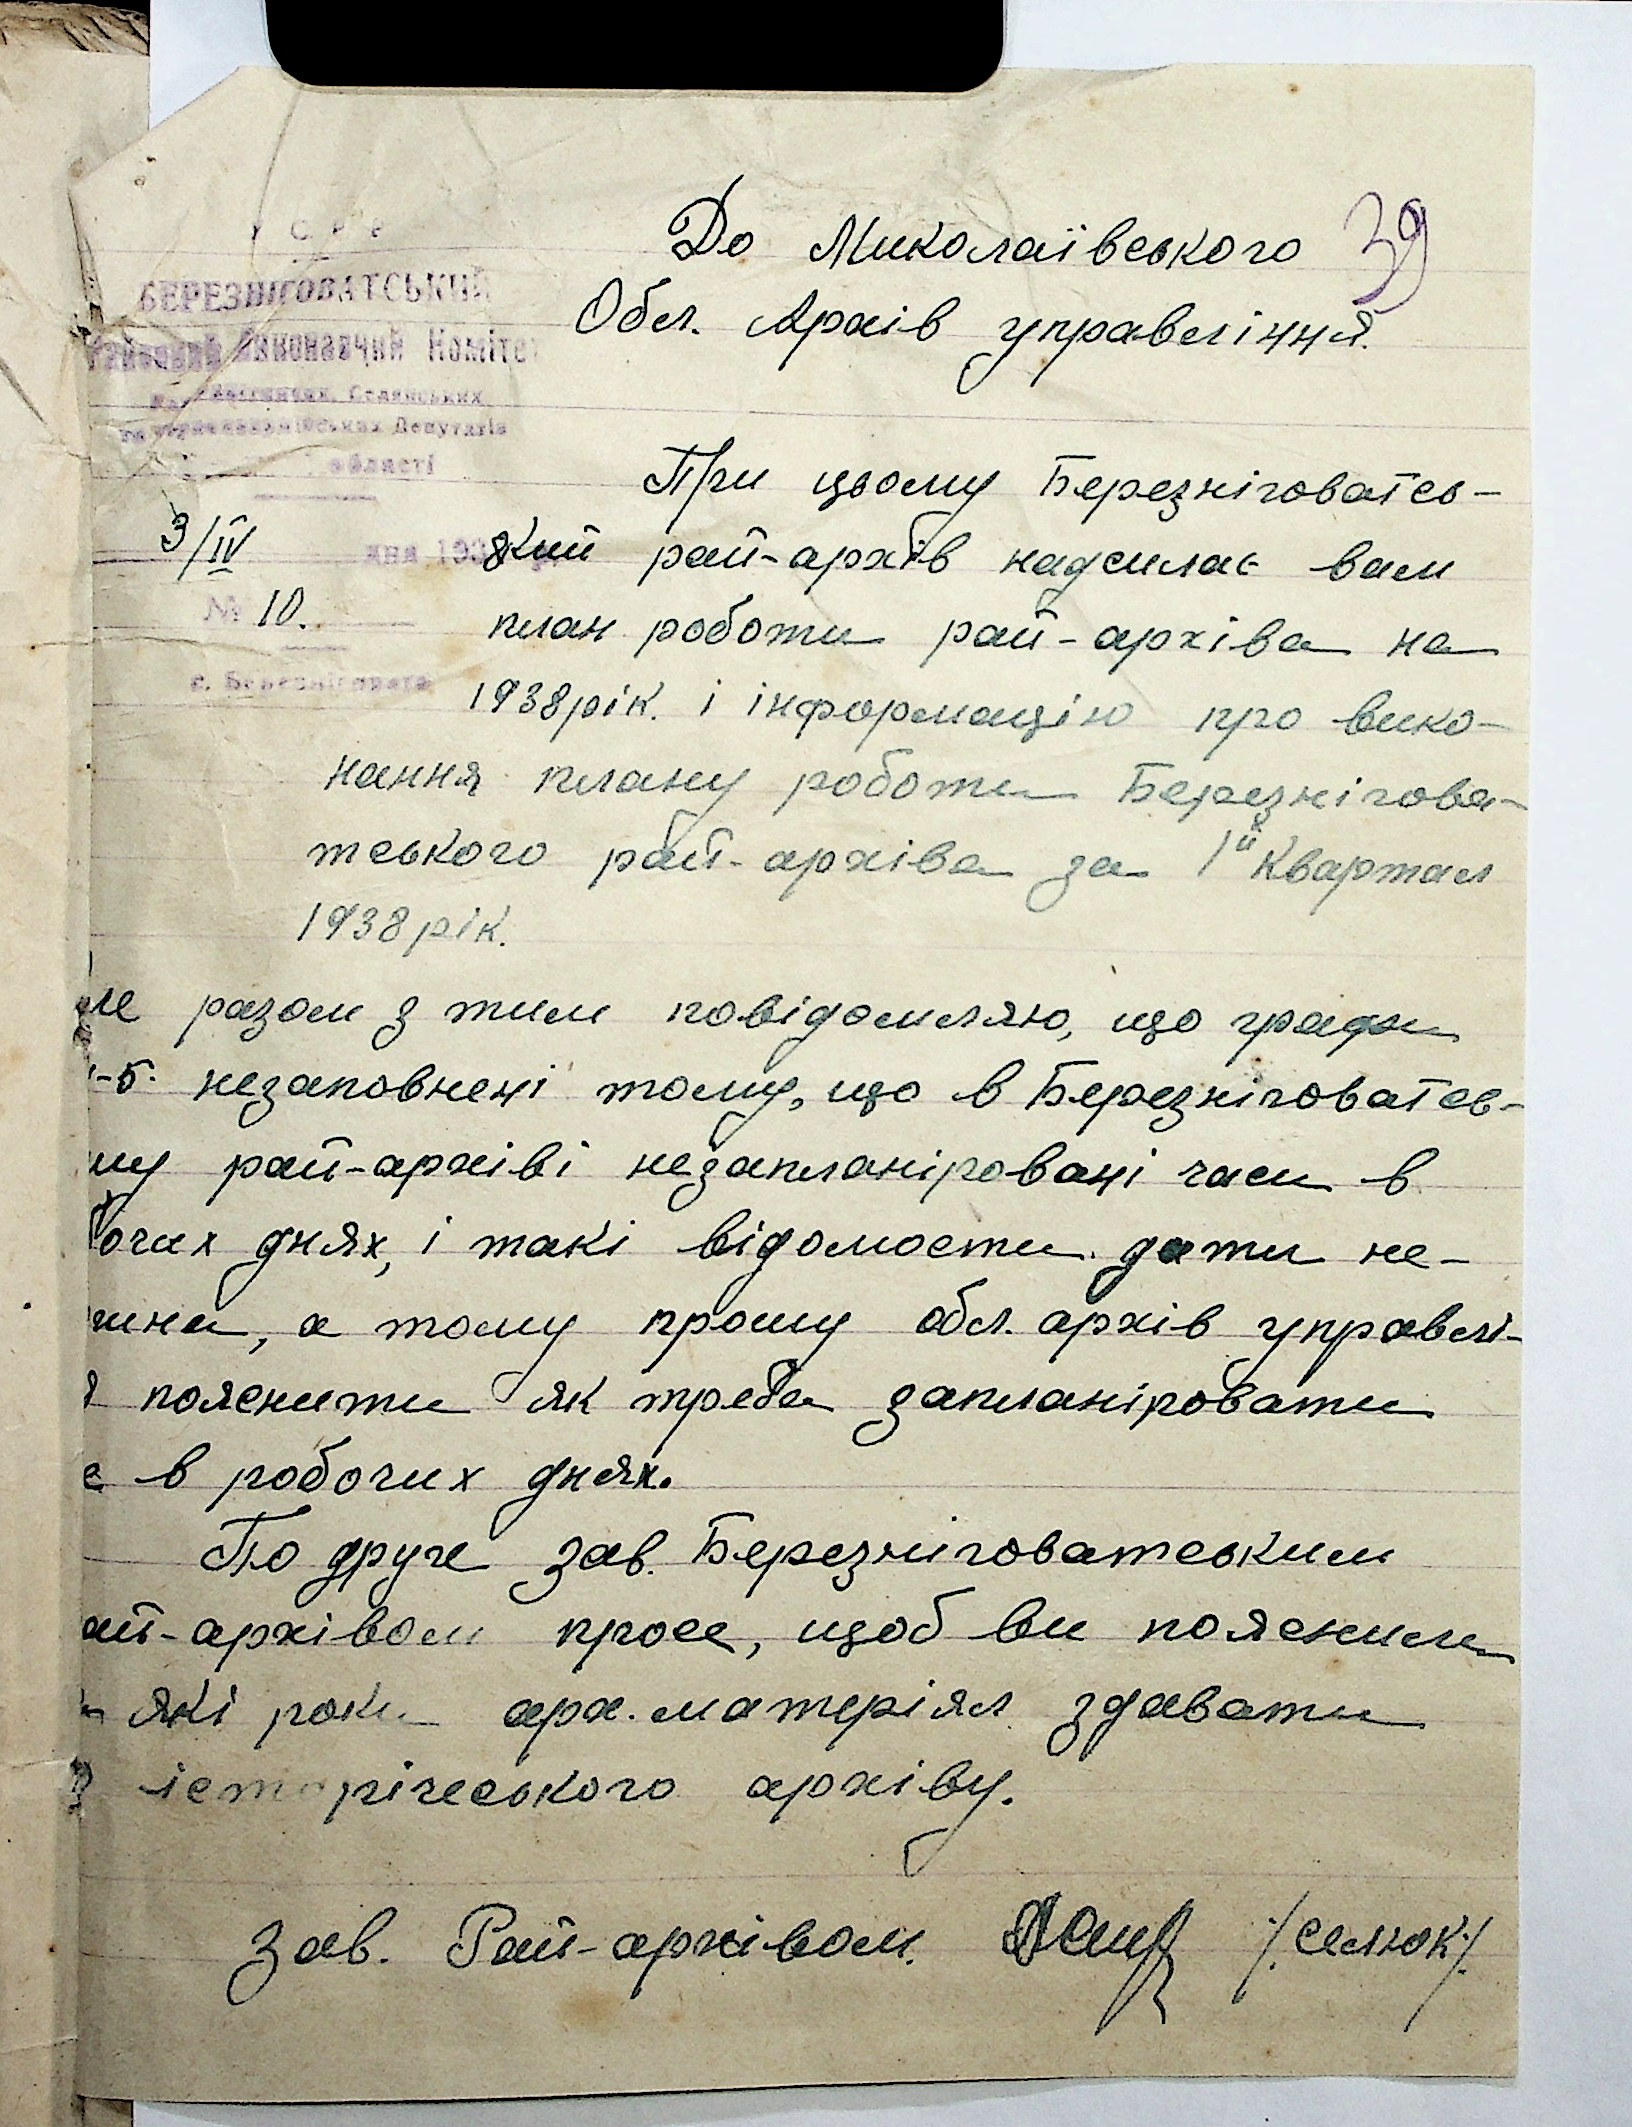 39
До Миколаївського
Обл. Архів управління.
БЕРЕЗНІГОВАТСЬКИЙ
Районний Виконавчий Комітет
Селянських
Депутатів
області
3/IV дня 1938
№ 10.
с. Березнігувата
При цьому Березніговатсь-
кий рай-архів надсилає вам
план роботи рай-архіва на
1938 рік. і інформацію про вико-
нання плану роботи Березнігова-
тського рай-архіва за 1й квартал
1938 рік.
ле разом з тим повідомляю, що графи
-5. незаповнені тому, що в Березніговатсь-
му рай-архіві незапланіровані часи в
очих днях, і такі відомости дати не-
жна, а тому прошу обл. архів управлі-
я пояснити як треба запланіровати
е в робочих днях.
По друге зав. Березніговатським
ай-архівом просе, щоб ви пояснили
які роки арх. матеріял здавати
історічеського архіву.
Зав. Рай-архівом. /Селюк/.